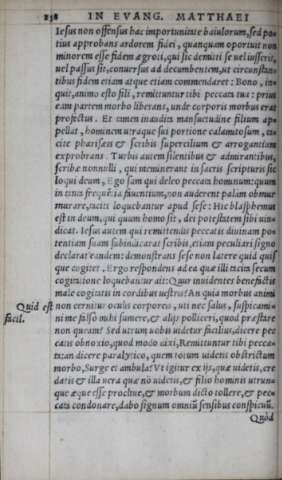 238 IN EVANG. MATTHAEI
Iesus non offensus hac importunitate baiulorum, sed po-
tius approbans ardorem fidei, quanquam oportuit non
minorem esse fidem ægroti, qui sic demitti se uel iusserit,
uel passus sit, conuersus ad decumbentem, ut circunstan-
tibus fidem etiam atque etiam commendaret: Bono, in-
quit, animo esto fili, remittuntur tibi peccata tua: prius
eam partem morbo liberans, unde corporis morbus erat
profectus. Et tamen inaudita mansuetudine filium ap-
pellat, hominem utraque sui portione calamitosum, ta-
cite pharisæis & scribis supercilium & arrogantiam
exprobrans. Turbis autem silentibus & admirantibus,
scribæ nonnulli, qui meminerant in sacris scripturis sic
loqui deum, Ego sum qui deleo peccata hominum: quum
in tanta frequentia fiuuntium, non auderent palam obmur
murare, taciti loquebantur apud sese: Hic blasphemus
est in deum, qui quum homo sit, dei potestatem sibi uin-
dicat. Iesus autem qui remittendis peccatis diuinam po-
tentiam suam subindicarat scribis, etiam peculiari signo
declarat eandem: demonstrans sese non latere quid quis
que cogitet. Ergo respondens ad ea quæ illi tacita secum
cogitatione loquebantur ait: Quur inuidentes beneficiis
male cogitatis in cordibus uestris? An quia morbus animi
Quid est non cernitur oculis corporeis, uti nec salus, suspicami-
facil. ni me falso mihi sumere, & aliis polliceri, quod præstare
non queam? Sed utrum uobis uidetur facilius, dicere pec
catis obnoxio, quod modo dixi, Remittuntur tibi pecca-
ta: an dicere paralytico, quem totum uidetis obstrictum
morbo, Surge et ambula? Vt igitur ex iis, quæ uidetis, cre
datis & illa uera quæ nō uidetis, & filio hominis utrun-
que æque esse procliue, & morbum dicto tollere, & pec-
cata condonare, dabo signum omniū sensibus conspicuū.
Quod